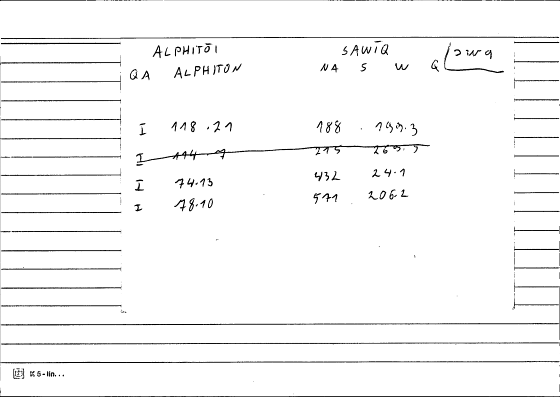 ALPHITŌI SAWĪQ
QA ALPHITON NA S W Q swq
I 118.21 188 . 199.3
I 114.7 215 269.5
I 74.13 432 24.1
I 78.10 571 206.2